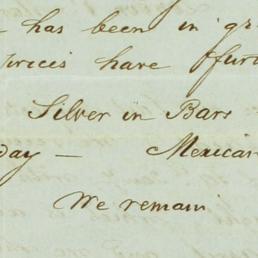 has been in
prices have
Silver in Bars
day — Mexican
We remain